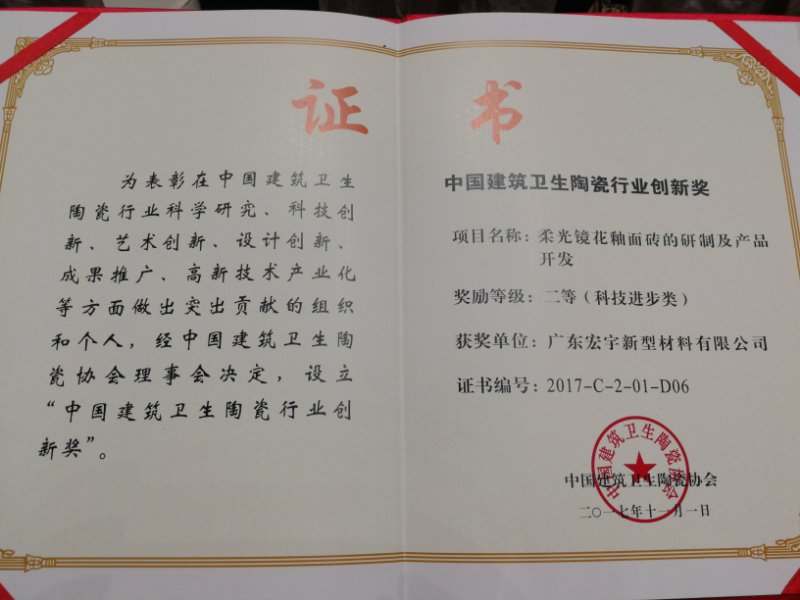 证 书
为表彰在中国建筑卫生
陶瓷行业科学研究、科技创
新、艺术创新、设计创新、
成果推广、高新技术产业化
等方面做出突出贡献的组织
和个人，经中国建筑卫生陶
瓷协会理事会决定，设立
“中国建筑卫生陶瓷行业创
新奖”。
中国建筑卫生陶瓷行业创新奖
项目名称：柔光镜花釉面砖的研制及产品
开发
奖励等级：二等（科技进步类）
获奖单位：广东宏宇新型材料有限公司
证书编号：2017-C-2-01-D06
中国建筑卫生陶瓷协会
中国建筑卫生陶瓷协会
二〇一七年十一月一日